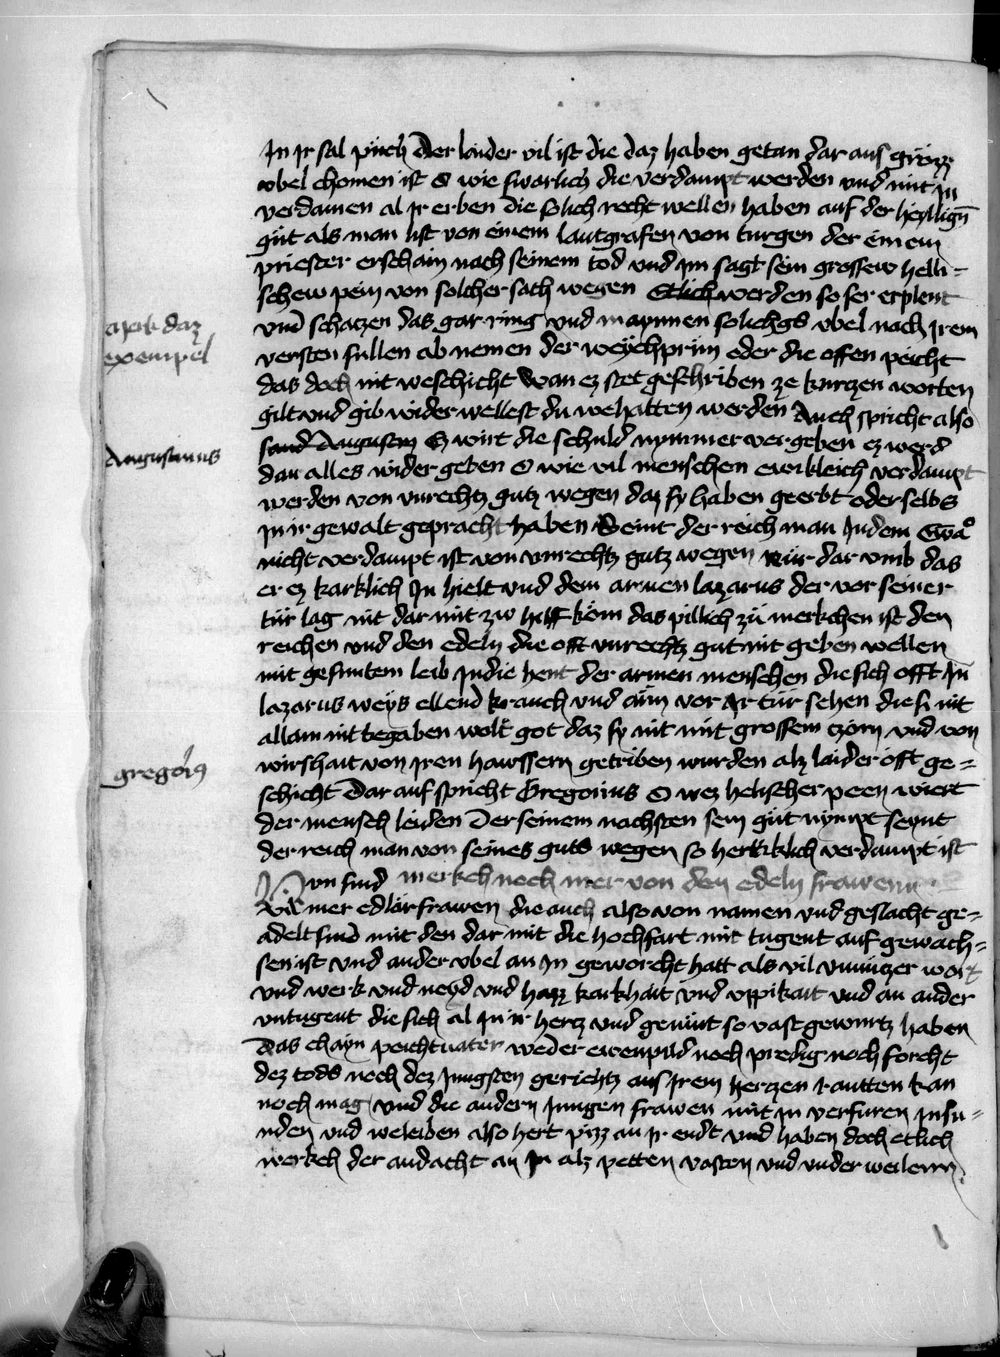 In ir sal puech Der laider vil ist die daz haben getan dar aus grözz
vbel chomen ist O wie swarlich die verdampt werden vnd mit In
verdamen al Ir erben die solich recht wellen haben auf der heylligen
güt als man list von einem lantgrafen von turgen der einem
priester erschain nach seinem tod vnd Im sagt sein grossew helli=
schew pein von solcher sach wegen Etlich werden so ser erplent
vnd schaczen das gar ring vnd maynnen solichgs vbel nach Irem
merk daz
exempel
versten sullen ab nemen der weychprun oder die offen peicht
das doch nit weschicht Wan ez stet geschriben ze kurczen worten
gilt vnd gib wider wellest du wehalten werden Auch spricht also
Augustinus
sand Augustin Ez wirt die schuld nymmer vergeben ez werd
dan alles wider geben O wie vil menschen ewikleich verdampt
werden von vnrechtz gutz wegen daz sy haben geerbt oder selbs
In ir gewalt gepracht haben Seint der reich man In dem Ewa°
nicht verdampt ist von vnrechtz gutz wegen nür dar vmb das
er ez karklich In hielt vnd dem armen lazarus der vor seiner
tür lag nit dar mit zw hilff kom das pillich zü merkchen ist den
reichen vnd den edeln die offt vnrechtz gut nit geben wellen
mit gesuntem leib In die hent der armen menschen die sich offt In
lazarus weys ellend kranch vnd arm vor Ir tür sehen die si nit
allain nit begaben wolt got daz sy nit mit grossem czorn vnd von
wirshait von Iren hawssern getriben wurden alz laider offt ge=
gregorius
schicht Dar auf spricht Gregorius O wez helischer peen wiert
der mensch leiden Der seinem nachsten sein güt nympt seynt
der reich man von seines guts wegen so hertiklich verdampt ist
Nvn sind merkch noch mer von den edeln frawenn
mer edlär frawen die auch also von namen vnd geslacht ge=
adelt sind mit den dar mit die hochfart mit tugent auf gewach=
sen ist vnd ander vbel an In geworcht hatt als vil vnnüczer wort
vnd werk vnd neyd vnd hazz karkhait vnd vppikait vnd an ander
vntugent die sich al In ir hercz vnd gemüt so vast gewurtz haben
Das chayn peichtuater weder ewenpild noch predig noch forcht
dez tods noch dez Jungsten gerichtz aus Irem herczen rautten kan
noch mag vnd die andern Jungen frawen mit in verfuren In su=
nden vnd weleiben also hert pizz an Ir endt vnd haben doch etlich
werkch der andacht an In alz petten vasten vnd vnder weilenn